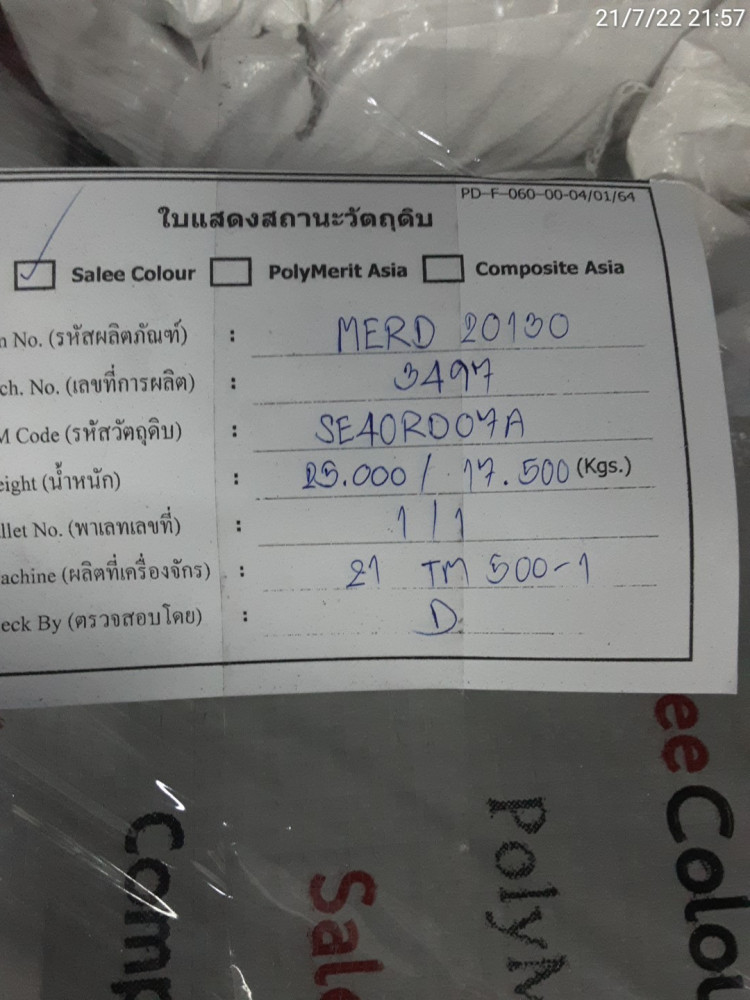 21/7/22 21:57
PD-F-060-00-04/01/64
ใบแสดงสถานะวัตถุดิบ
Salee Colour PolyMerit Asia Composite Asia
No. (รหัสผลิตภัณฑ์) : MERD 20130
ch. No. (เลขที่การผลิต) : 3497
M Code (รหัสวัตถุดิบ) : SE40RD07A
eight (น้ำหนัก) : 25.000 / 17.500 (Kgs.)
llet No. (พาเลทเลขที่) : 1 / 1
achine (ผลิตที่เครื่องจักร) : 21 TM 500-1
eck By (ตรวจสอบโดย) : D
ee Colou
PolyM
Sale
Comp